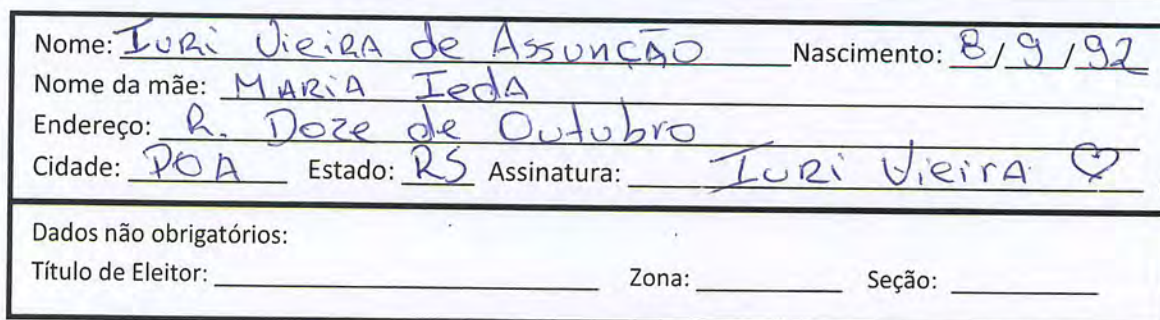 Nome: Iuri Vieira de Assunção Nascimento: 8/9/92
Nome da mãe: Maria Ieda
Endereço: R. Doze de Outubro
Cidade: POA Estado: RS Assinatura: Iuri Vieira ♡
Dados não obrigatórios:
Título de Eleitor: Zona: Seção: